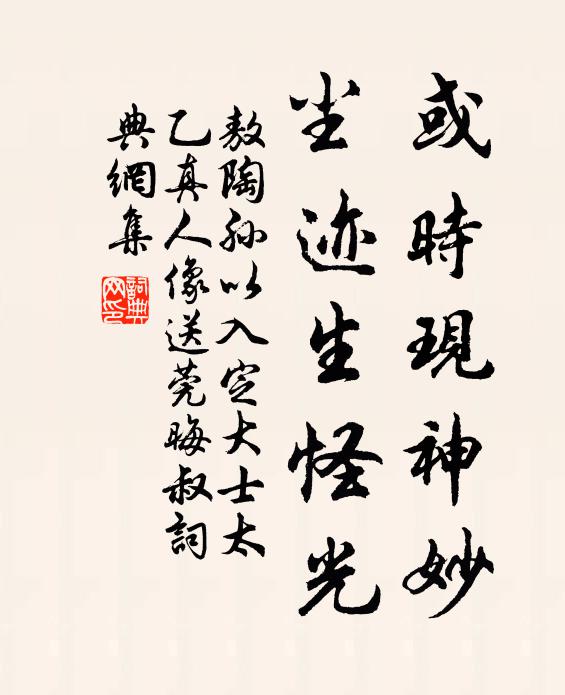 或時現神妙
坐迹生怪光
敖陶孙以入定大士太
乙真人像送莞晦叔詞
典網集
詞典网印